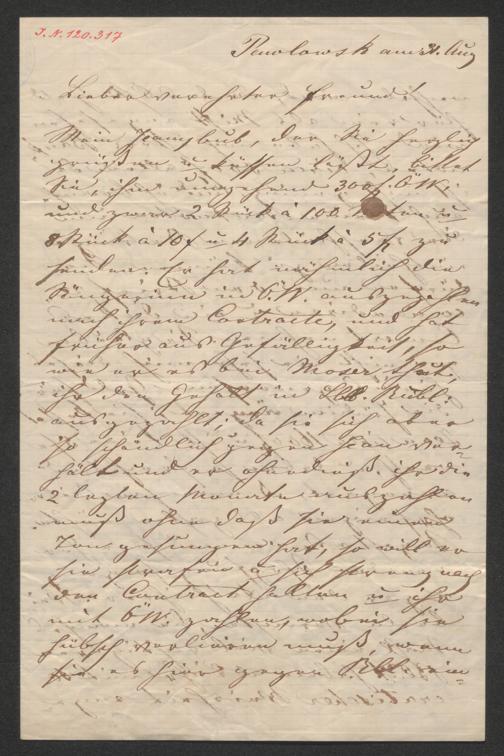 I. N. 120.317
Pawlowsk am 21. Aug
Lieber verehrter Freund!
Mein Jeanybub, der Sie herzlich
grüßen u küssen läßt, bittet
Sie, ihm umgehend 300 f ÖW.
und zwar 2 Stück à 100 u
8 Stück à 10 f u 4 Stück à 5 f zu
senden. Er hat nähmlich die
Sängerinn in Ö.W. auszuzahlen
nach ihrem Contracte, und hat
früher aus Gefälligkeit, so
wie er es bei Moser that,
ihr den Gehalt in Slb. Rubl:
ausgezahlt; da sie sich aber
so schändlich gegen Jean ver-
hält und er ohnedieß ihr die
2 letzten Monate auszahlen
muß ohne daß sie einen
Ton gesungen hat, so will er
sie strafen u sich streng nach
den Contract halten u ihr
mit ÖW. zahlen, wobei sie
hübsch verlieren muß, wenn
sie es hier gegen Slb. ein-